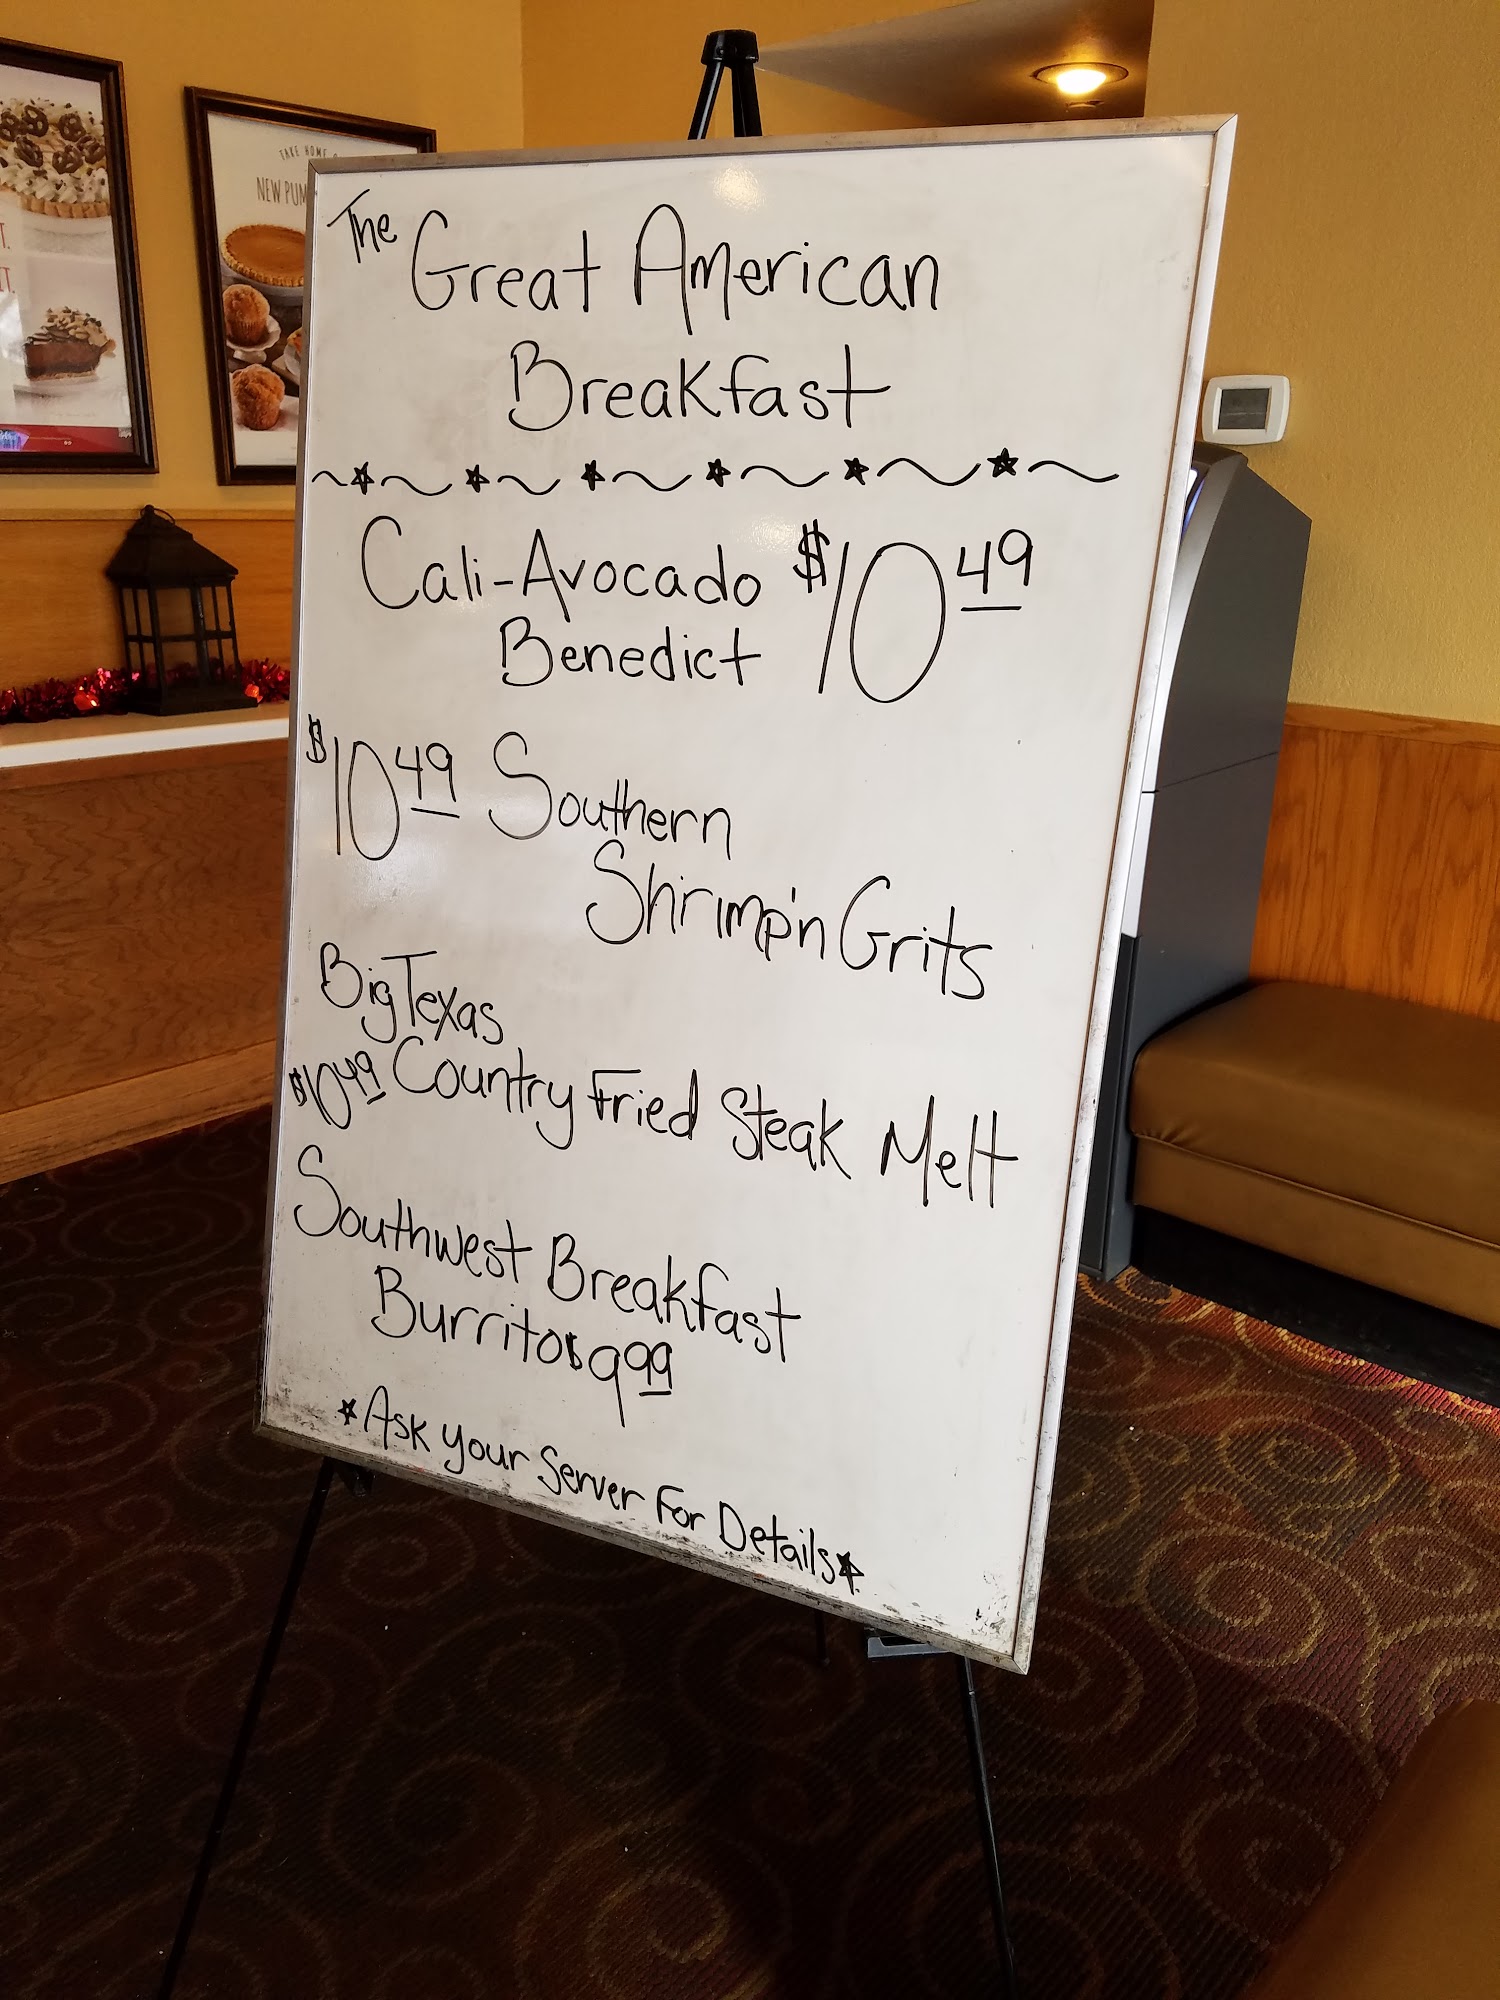 TAKE HOME
NEW PUM
The Great American
Breakfast
Cali-Avocado $10 49
Benedict
$10 49 Southern
Shrimp'n Grits
Big Texas
$10 49 Country Fried Steak Melt
Southwest Breakfast
Burrito $9 99
*Ask your Server For Details*